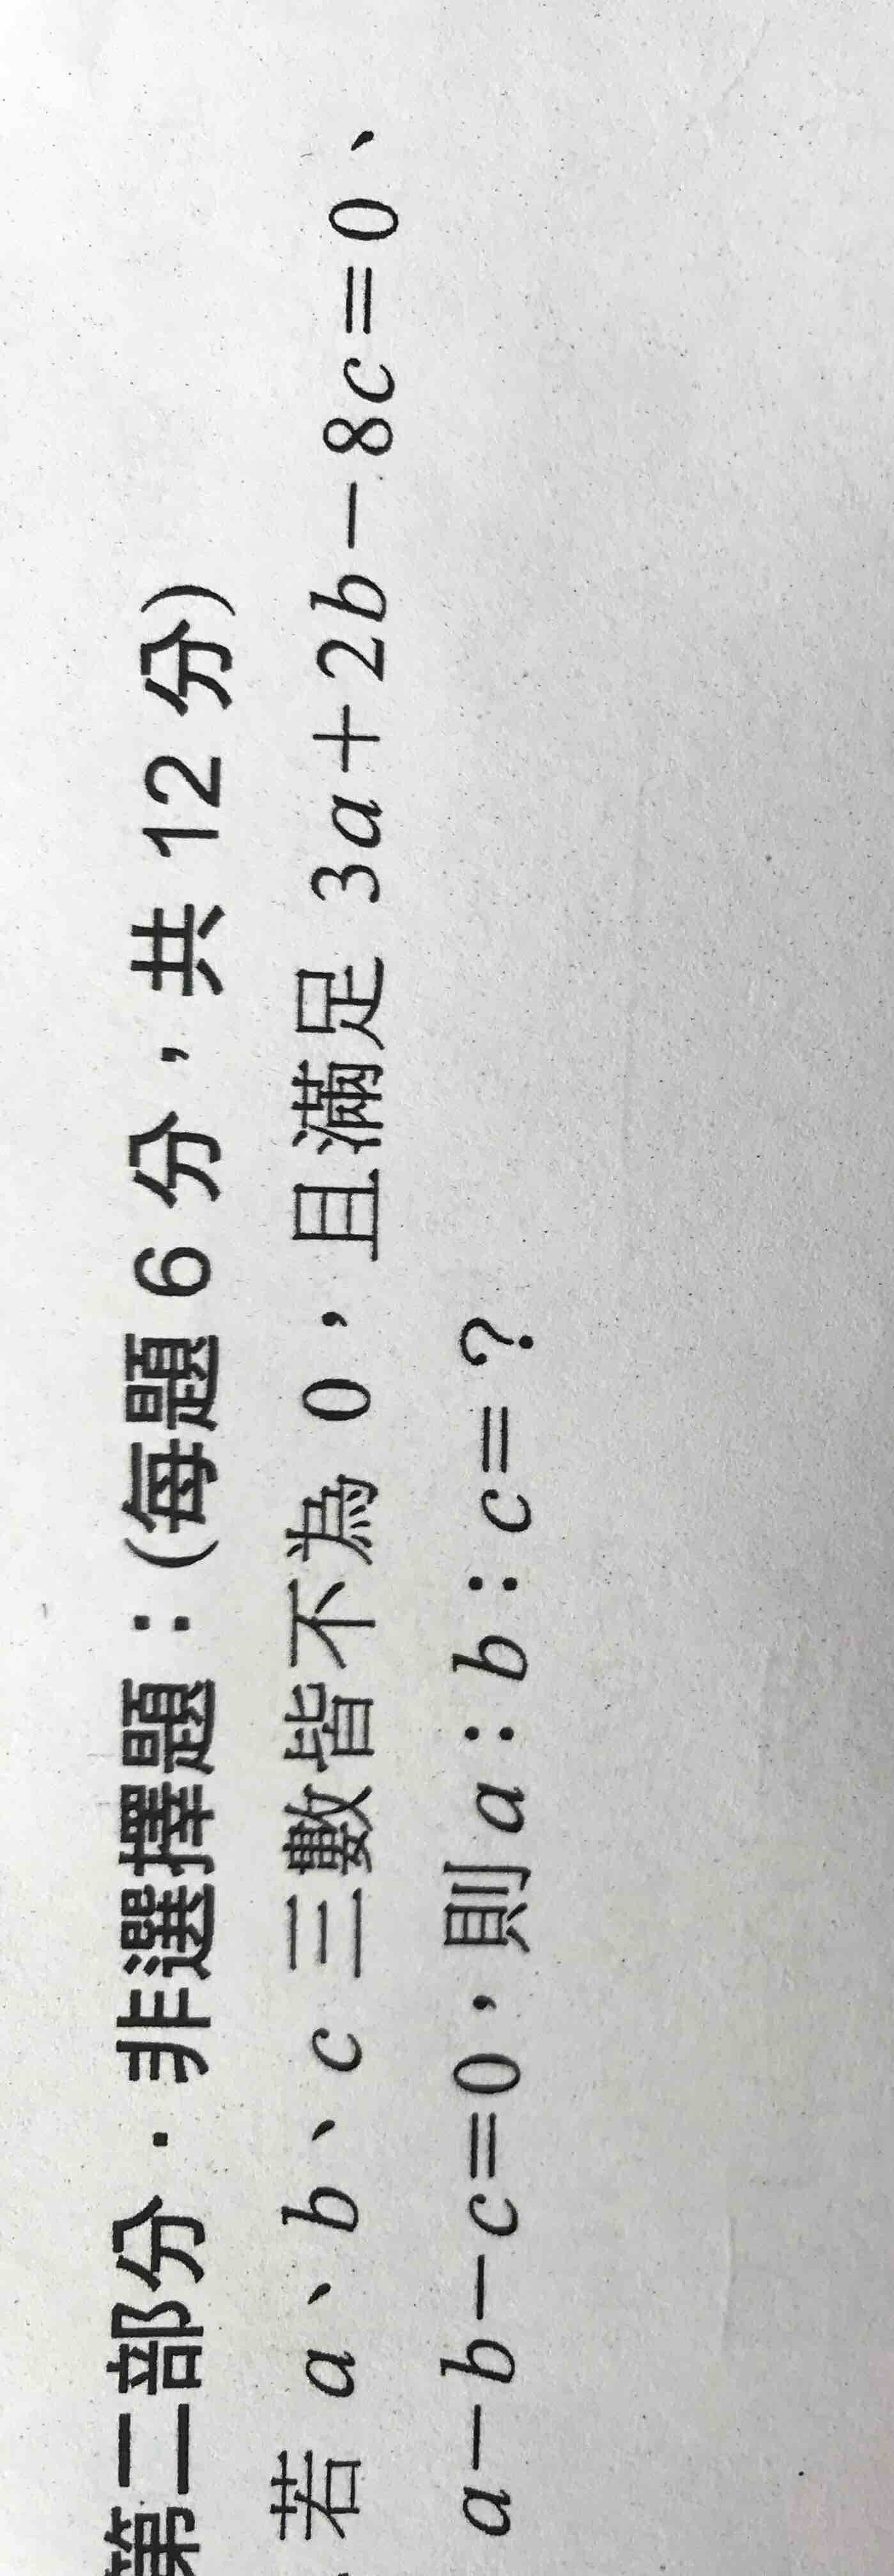 第二部分．非選擇題：(每題 6 分，共 12 分)
若 a、b、c 三數皆不為 0，且滿足 3a＋2b－8c＝0、
a－b－c＝0，則 a：b：c＝？